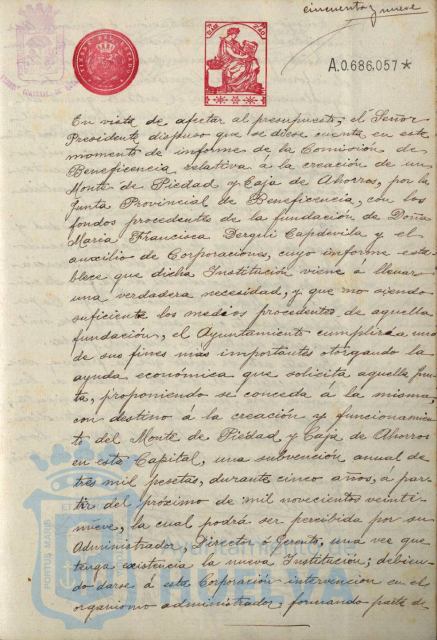 cincuenta y nueve
A.0.686,057*
En vista de afectar al presupuesto, el Señor
Presidente dispuso que se diese cuenta, en este
momento de informe de la Comisión de
Beneficencia relativa á la creación de un
Monte de Piedad y Caja de Ahorros, por la
Junta Provincial de Beneficencia, con los
fondos procedentes de la fundación de Doña
Maria Francisca Dergili Capdevila y el
auxilio de Corporaciones, cuyo informe esta-
blece que dicha Institución viene á llenar
una verdadera necesidad, y que no siendo
suficiente los medios procedentes de aquella
fundación, el Ayuntamiento cumpliría uno
de sus fines mas importantes otorgando la
ayuda económica que solicita aquella Jun-
ta, proponiendo se conceda á la misma,
con destino á la creación y funcionamien-
to del Monte de Piedad y Caja de Ahorros
en esta Capital, una subvención anual de
tres mil pesetas, durante cinco años, á par-
tir del próximo de mil novecientos veinti-
nueve, la cual podrá ser percibida por su
Administrador, Director ó Gerente, una vez que
tenga existencia la nueva Institución; debien-
do darse á esta Corporación intervención en el
organismo administrador, formando parte de
Ayuntamiento de
HUELVA
PORTUS MARIS